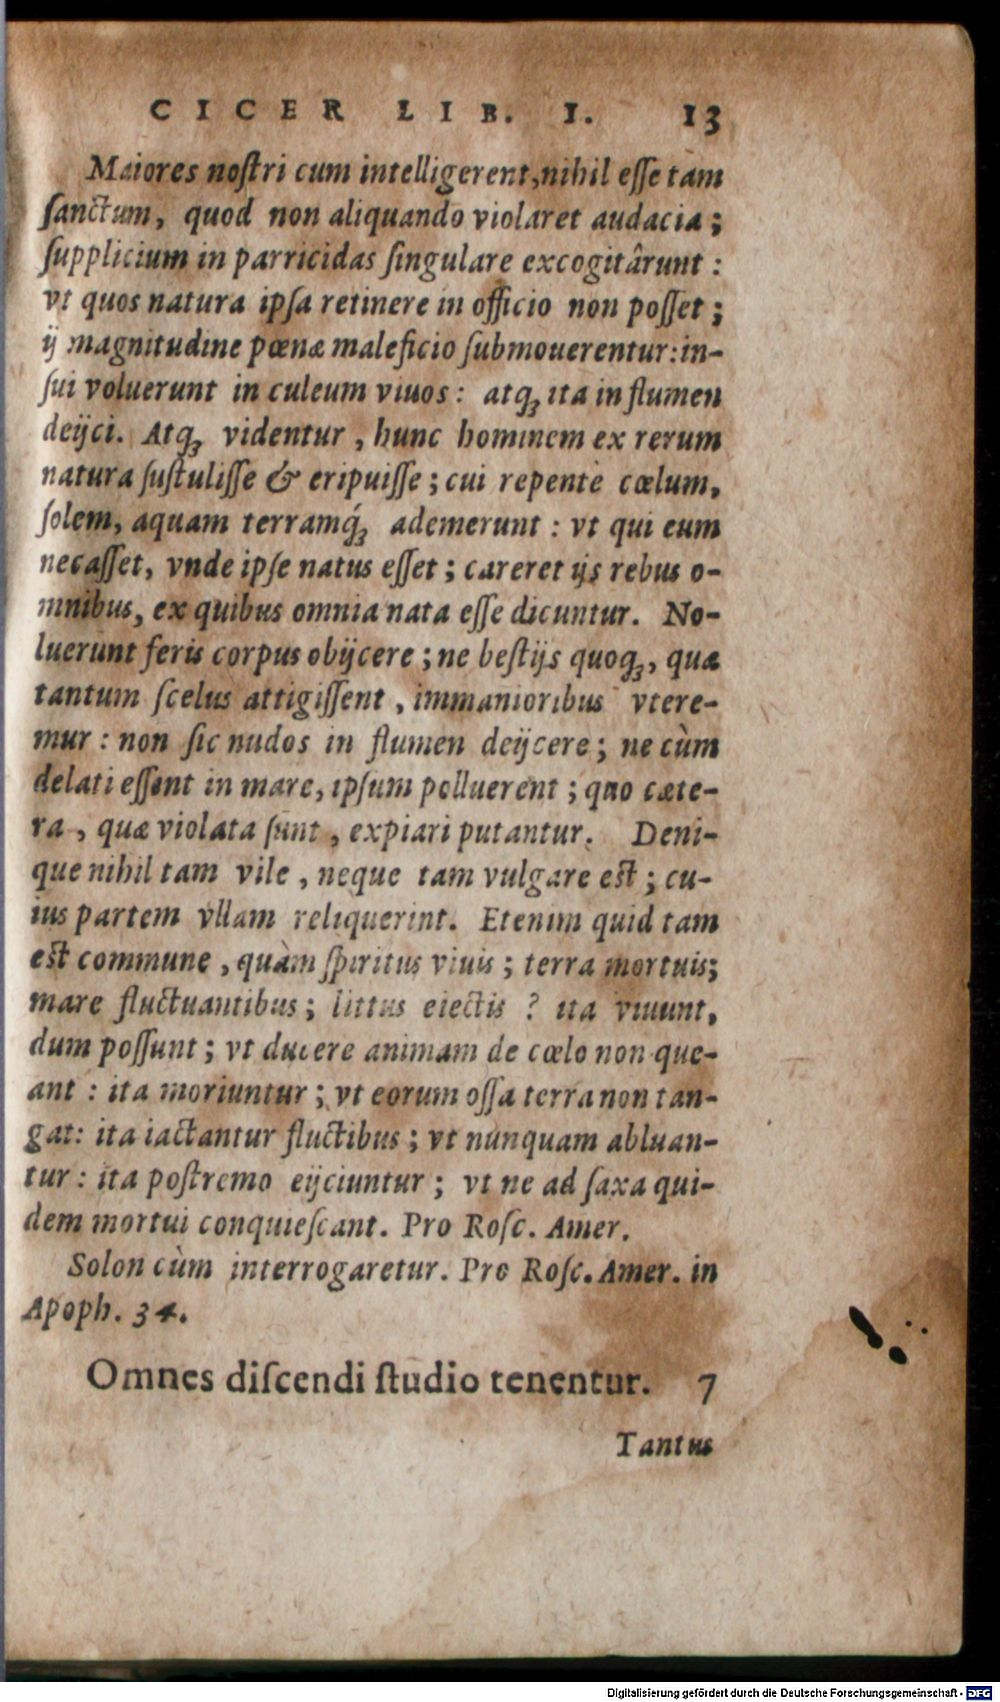 CICER LIB. I. 13
Maiores noſtri cum intelligerent, nihil eſſe tam
ſanctum, quod non aliquando violaret audacia;
ſupplicium in parricidas ſingulare excogitârunt:
vt quos natura ipſa retinere in officio non poſſet;
ij magnitudine pœnæ maleficio ſubmouerentur: in-
ſui voluerunt in culeum viuos: atqꝫ ita in flumen
deijci. Atqꝫ videntur, hunc hominem ex rerum
natura ſuſtuliſſe & eripuiſſe; cui repentè cœlum,
ſolem, aquam terramq́ꝫ ademerunt: vt qui eum
necaſſet, vnde ipſe natus eſſet; careret ijs rebus o-
mnibus, ex quibus omnia nata eſſe dicuntur. No-
luerunt feris corpus obijcere; ne beſtijs quoqꝫ, quæ
tantum ſcelus attigiſſent, immanioribus vtere-
mur: non ſic nudos in flumen deijcere; ne cùm
delati eſſent in mare, ipſum polluerent; quo cæte-
ra, quæ violata ſunt, expiari putantur. Deni-
que nihil tam vile, neque tam vulgare eſt; cu-
ius partem vllam reliquerint. Etenim quid tam
eſt commune, quàm ſpiritus viuis; terra mortuis;
mare fluctuantibus; littus eiectis? ita viuunt,
dum poſſunt; vt ducere animam de cœlo non que-
ant: ita moriuntur; vt eorum oſſa terra non tan-
gat: ita iactantur fluctibus; vt nunquam abluan-
tur: ita poſtremo eijciuntur; vt ne ad ſaxa qui-
dem mortui conquieſcant. Pro Roſc. Amer.
Solon cùm interrogaretur. Pro Roſc. Amer. in
Apoph. 34.
Omnes diſcendi ſtudio tenentur. 7
Tantus
Digitalisierung gefördert durch die Deutsche Forschungsgemeinschaft - DFG